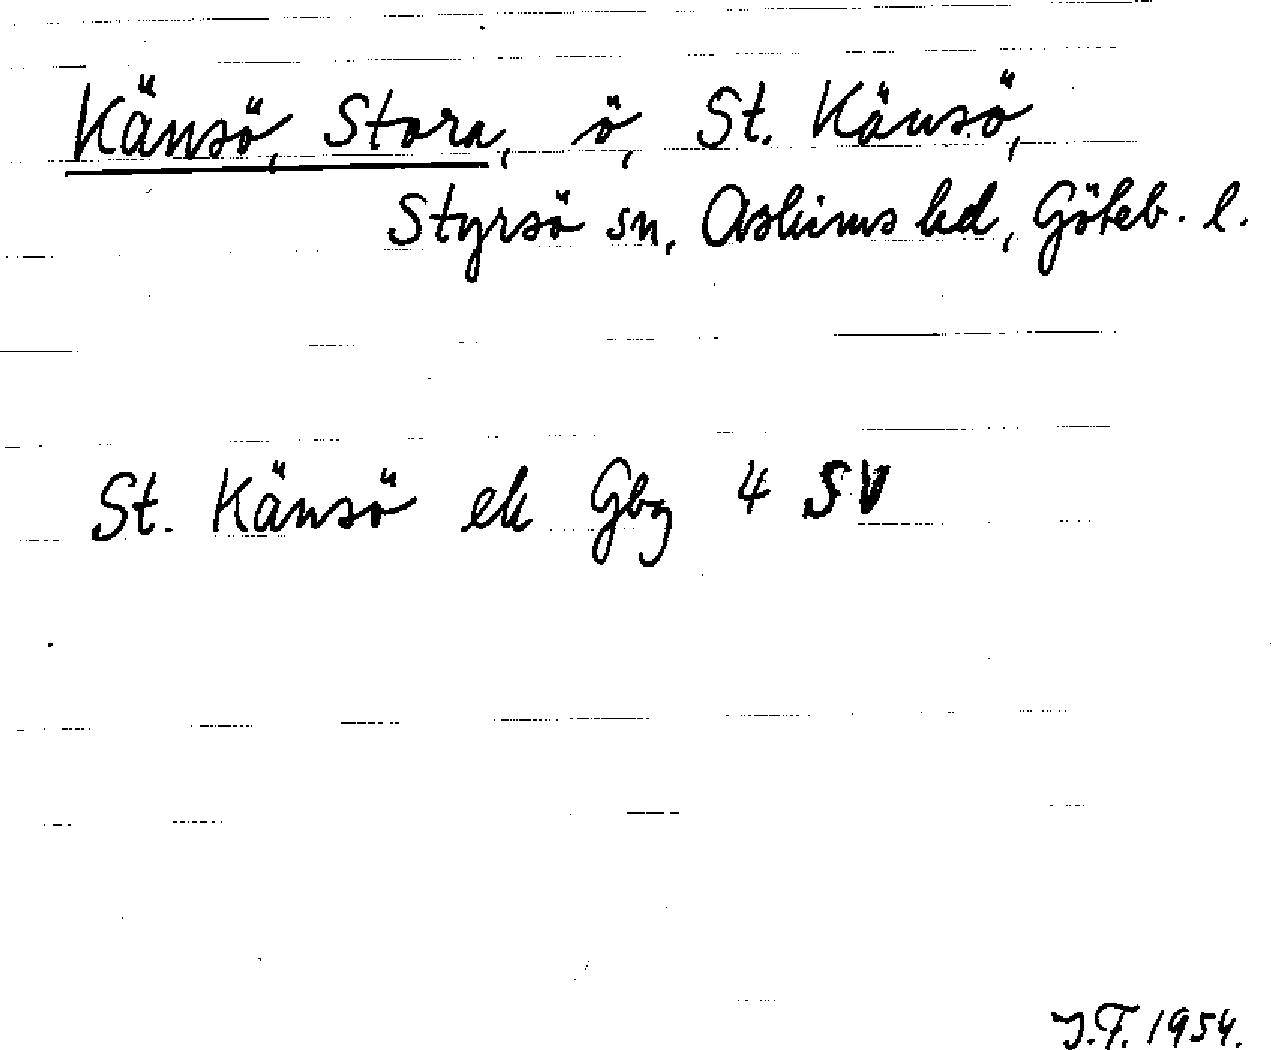 Känsö, Stora, ö, St. Känsö,
Styrsö sn, Askims hd, Göteb. l.
St. Känsö ek Gbg 4 SV
J.F. 1954.